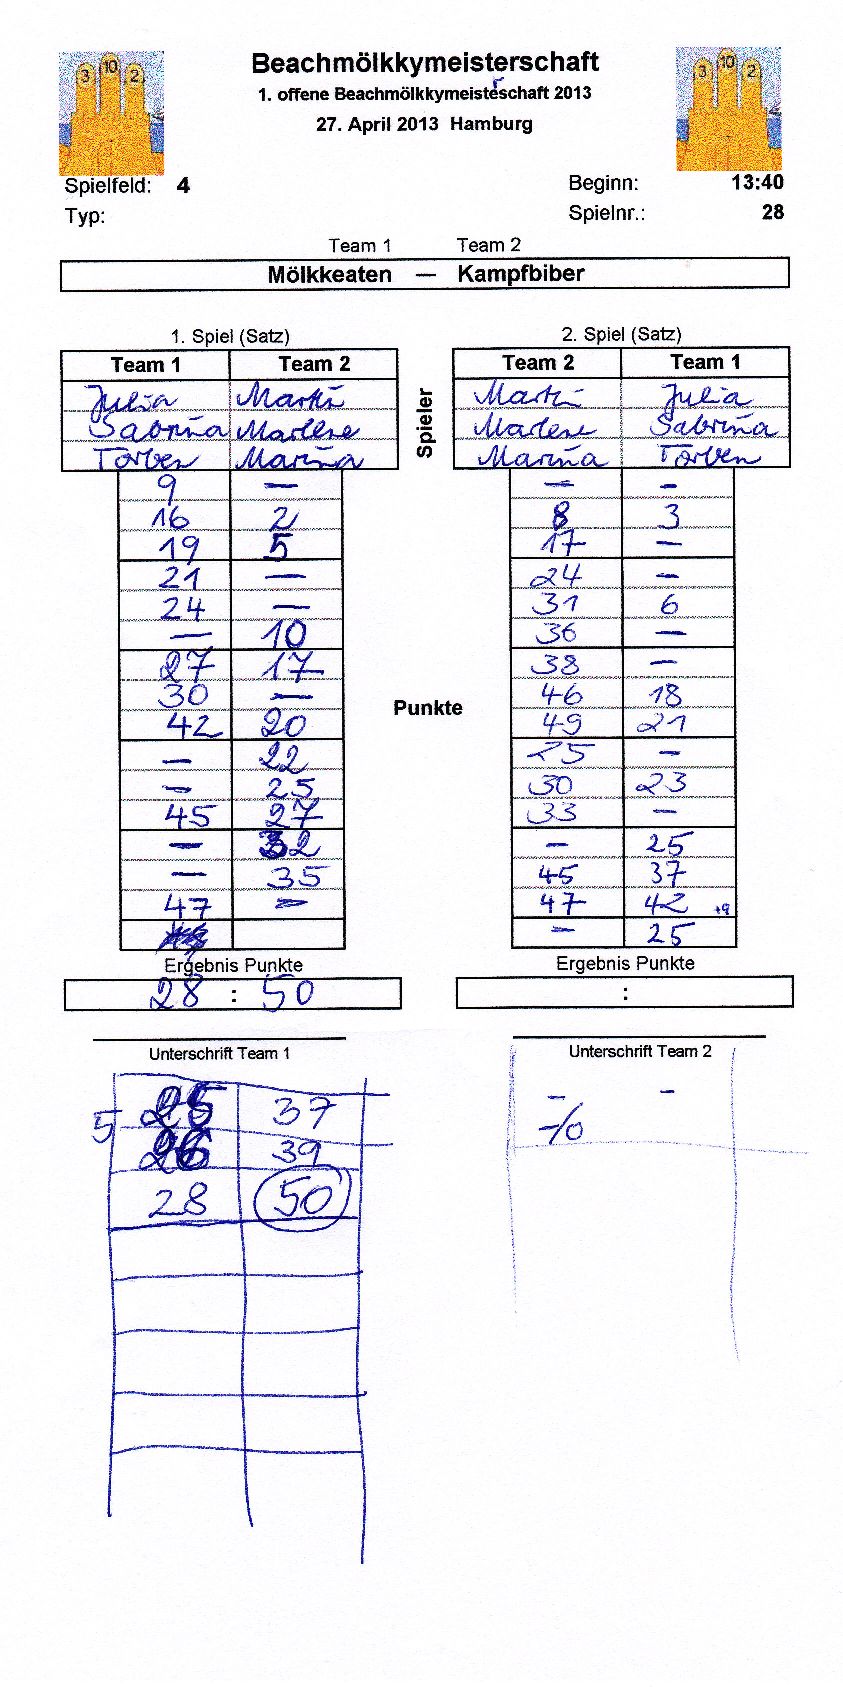 3 10 2
Beachmölkkymeisterschaft
3 10 2
1. offene Beachmölkkymeisteschaft 2013
r
27. April 2013 Hamburg
Spielfeld: 4
Beginn: 13:40
Typ:
Spielnr.: 28
Team 1 Team 2
Mölkkeaten — Kampfbiber
1. Spiel (Satz)
Team 1 Team 2
Julia Martin
Sabrina Marlene
Torben Marina
9 —
16 2
19 5
21 —
24 —
— 10
27 17
30 —
42 20
— 22
— 25
45 27
— 32
— 35
47 —
Ergebnis Punkte
28 : 50
Unterschrift Team 1
5 25 37
26 39
28 50
Spieler
Punkte
2. Spiel (Satz)
Team 2 Team 1
Martin Julia
Marlene Sabrina
Marina Torben
— —
8 3
17 —
24 —
31 6
36 —
38 —
46 18
49 21
25 —
30 23
33 —
— 25
45 37
47 42 +9
— 25
Ergebnis Punkte
:
Unterschrift Team 2
— —
-/0